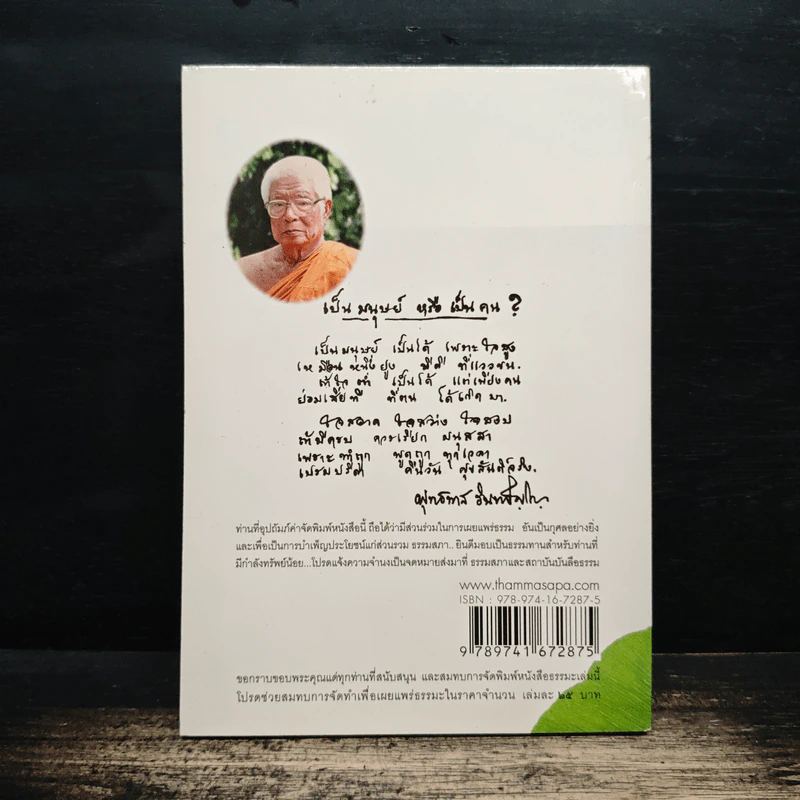 เป็น มนุษย์ หรือ เป็น คน ?
เป็น มนุษย์ เป็นได้ เพราะ ใจสูง
เหมือน หนึ่งยูง มีดี ที่แววขน.
ถ้าใจต่ำ เป็นได้ แต่เพียงคน
ย่อมเสียที ที่ตน ได้เกิด มา.
ใจสอาด ใจสว่าง ใจสงบ
ถ้ามีครบ ควรเรียก มนุสสา
เพราะทำถูก พูดถูก ทุกเวลา
เปรมปรีดา คืนวัน สุขสันต์จริง.
พุทธทาส อินทปัญโญ
ท่านที่อุปถัมภ์ค่าจัดพิมพ์หนังสือนี้ ถือได้ว่ามีส่วนร่วมในการเผยแพร่ธรรม อันเป็นกุศลอย่างยิ่ง
และเพื่อเป็นการบำเพ็ญประโยชน์แก่ส่วนรวม ธรรมสภา.. ยินดีมอบเป็นธรรมทานสำหรับท่านที่
มีกำลังทรัพย์น้อย...โปรดแจ้งความจำนงเป็นจดหมายส่งมาที่ ธรรมสภาและสถาบันบันลือธรรม
www.thammasapa.com
ISBN : 978-974-16-7287-5
9 789741 672875
ขอกราบขอบพระคุณแด่ทุกท่านที่สนับสนุน และสมทบการจัดพิมพ์หนังสือธรรมะเล่มนี้
โปรดช่วยสมทบการจัดทำเพื่อเผยแพร่ธรรมะในราคาจำนวน เล่มละ ๒๕ บาท